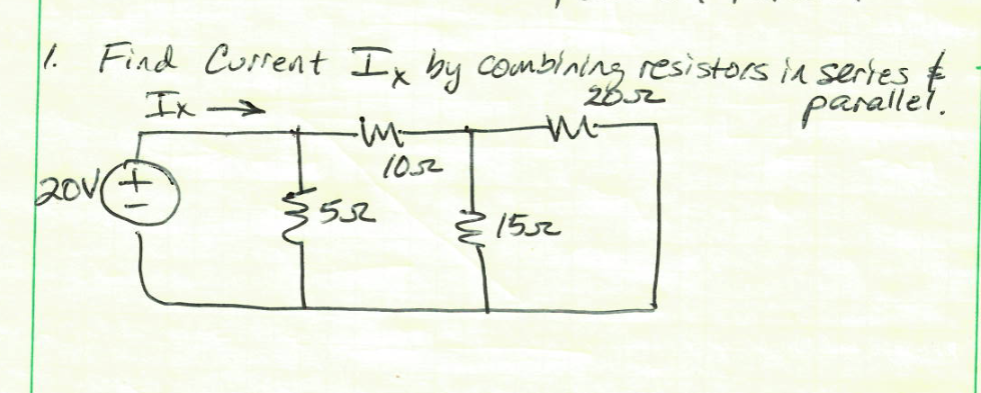 1. Find Current Ix by combining resistors in series &
parallel.
Ix →
20Ω
10Ω
20V
+
-
5Ω
15Ω